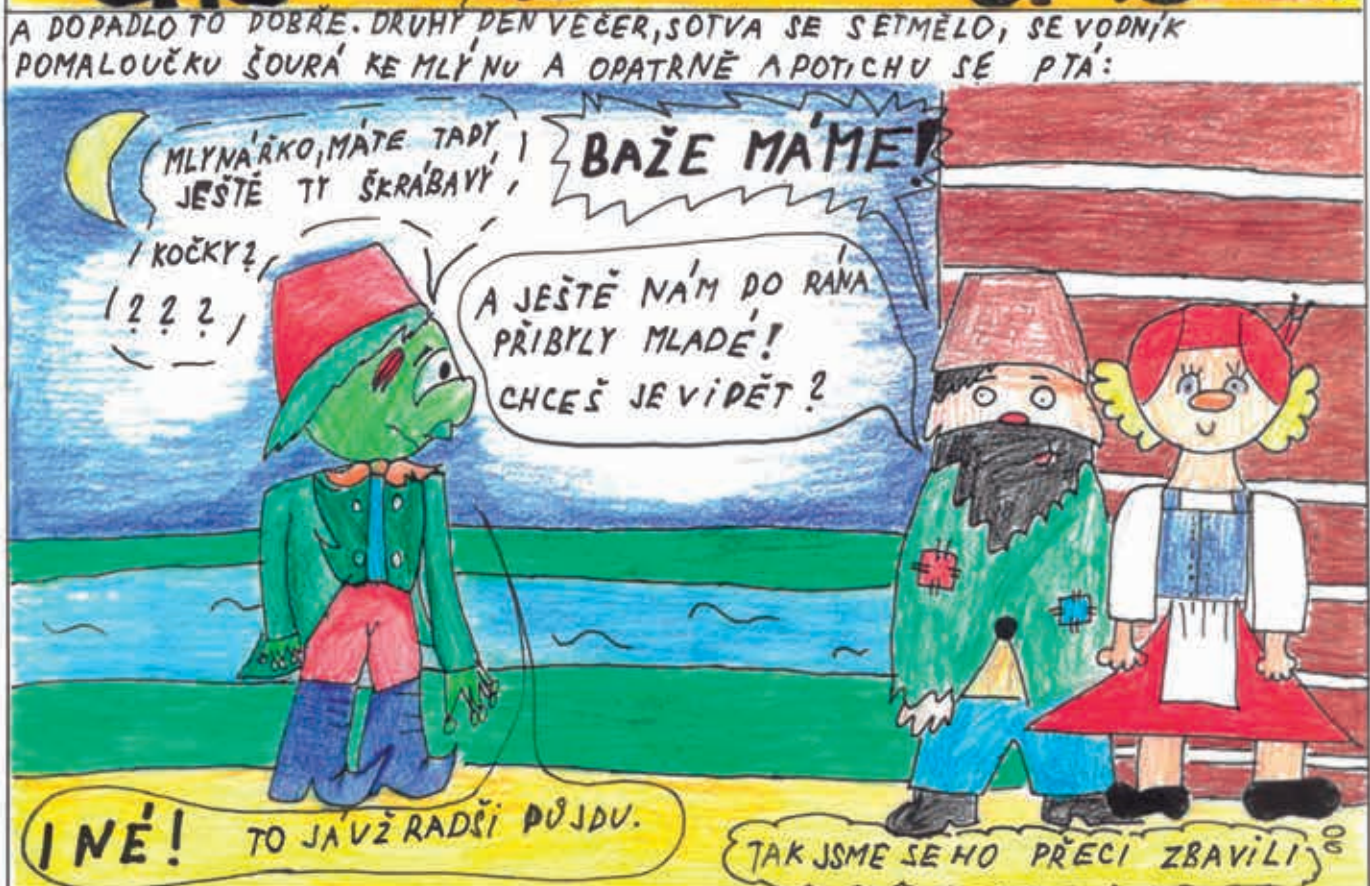 A DOPADLO TO DOBŘE. DRUHÝ DEN VEČER, SOTVA SE SETMĚLO, SE VODNÍK
POMALOUČKU ŠOURÁ KE MLÝNU A OPATRNĚ A POTICHU SE PTÁ:
MLYNÁŘKO, MÁTE TADY
JEŠTĚ TY ŠKRÁBAVÝ
KOČKY?
? ? ?
BAŽE MÁME!
A JEŠTĚ NÁM DO RÁNA
PŘIBYLY MLADÉ!
CHCEŠ JE VIDĚT?
I NÉ! TO JÁ UŽ RADŠI PŮJDU.
TAK JSME SE HO PŘECI ZBAVILI